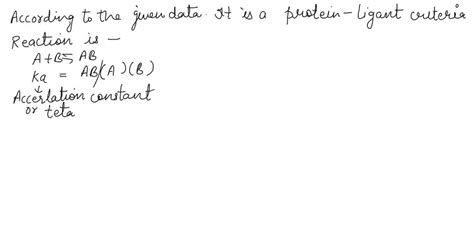 According to the given data. It is a protein-Ligant criteria
Reaction is -
A+B⇌AB
Ka = AB/(A)(B)
↓
Accerlation constant
or teta